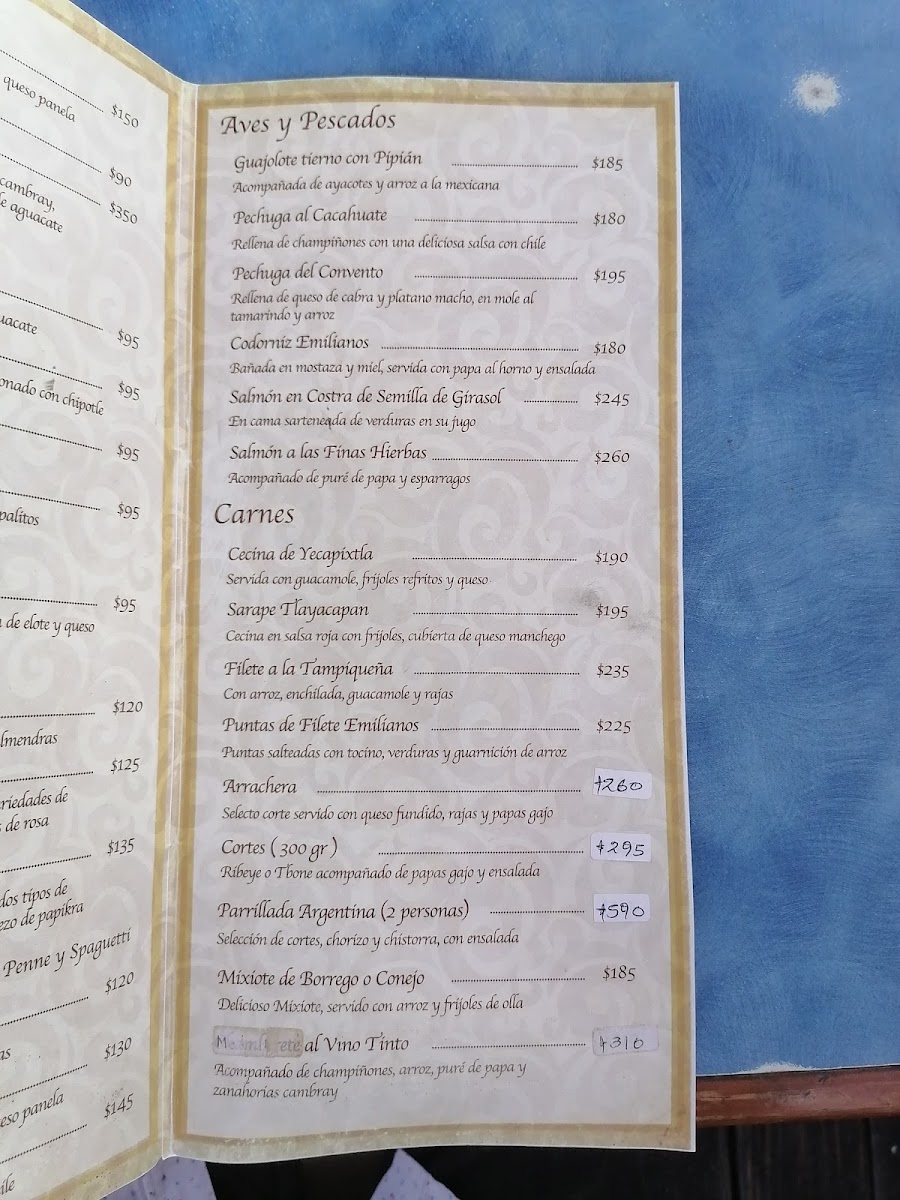 queso panela
$150
$90
cambray,
$350
de aguacate
uacate
$95
onado con chipotle
$95
$95
palitos
$95
$95
de elote y queso
$120
lmendras
$125
riedades de
de rosa
$135
dos tipos de
ezo de papikra
Penne y Spaguetti
$120
as
$130
eso panela
$145
ile
Aves y Pescados
Guajolote tierno con Pipián $185
Acompañada de ayacotes y arroz a la mexicana
Pechuga al Cacahuate $180
Rellena de champiñones con una deliciosa salsa con chile
Pechuga del Convento $195
Rellena de queso de cabra y platano macho, en mole al
tamarindo y arroz
Codorniz Emilianos $180
Bañada en mostaza y miel, servida con papa al horno y ensalada
Salmón en Costra de Semilla de Girasol $245
En cama sarteneada de verduras en su jugo
Salmón a las Finas Hierbas $260
Acompañado de puré de papa y esparragos
Carnes
Cecina de Yecapixtla $190
Servida con guacamole, frijoles refritos y queso
Sarape Tlayacapan $195
Cecina en salsa roja con frijoles, cubierta de queso manchego
Filete a la Tampiqueña $235
Con arroz, enchilada, guacamole y rajas
Puntas de Filete Emilianos $225
Puntas salteadas con tocino, verduras y guarnición de arroz
Arrachera $260
Selecto corte servido con queso fundido, rajas y papas gajo
Cortes (300 gr) $295
Ribeye o Tbone acompañado de papas gajo y ensalada
Parrillada Argentina (2 personas) $590
Selección de cortes, chorizo y chistorra, con ensalada
Mixiote de Borrego o Conejo $185
Delicioso Mixiote, servido con arroz y frijoles de olla
al Vino Tinto $310
Acompañado de champiñones, arroz, puré de papa y
zanahorias cambray